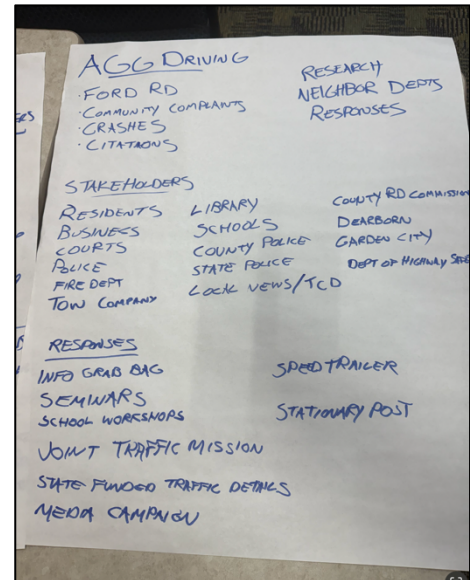 AGG DRIVING
· FORD RD
· COMMUNITY COMPLAINTS
· CRASHES
· CITATAONS
RESEARCH
NEIGHBOR DEPTS
RESPONSES
STAKEHOLDERS
RESIDENTS
BUSINESS
COURTS
POLICE
FIRE DEPT
TOW COMPANY
LIBRARY
SCHOOLS
COUNTY POLICE
STATE POLICE
LOCAL NEWS/TCD
COUNTY RD COMMISSION
DEARBORN
GARDEN CITY
DEPT OF HIGHWAY
RESPONSES
INFO GRAB BAG
SEMINARS
SCHOOL WORKSHOPS
JOINT TRAFFIC MISSION
STATE FUNDED TRAFFIC DETAILS
MEDIA CAMPAIGN
SPEED TRAILER
STATIONARY POST